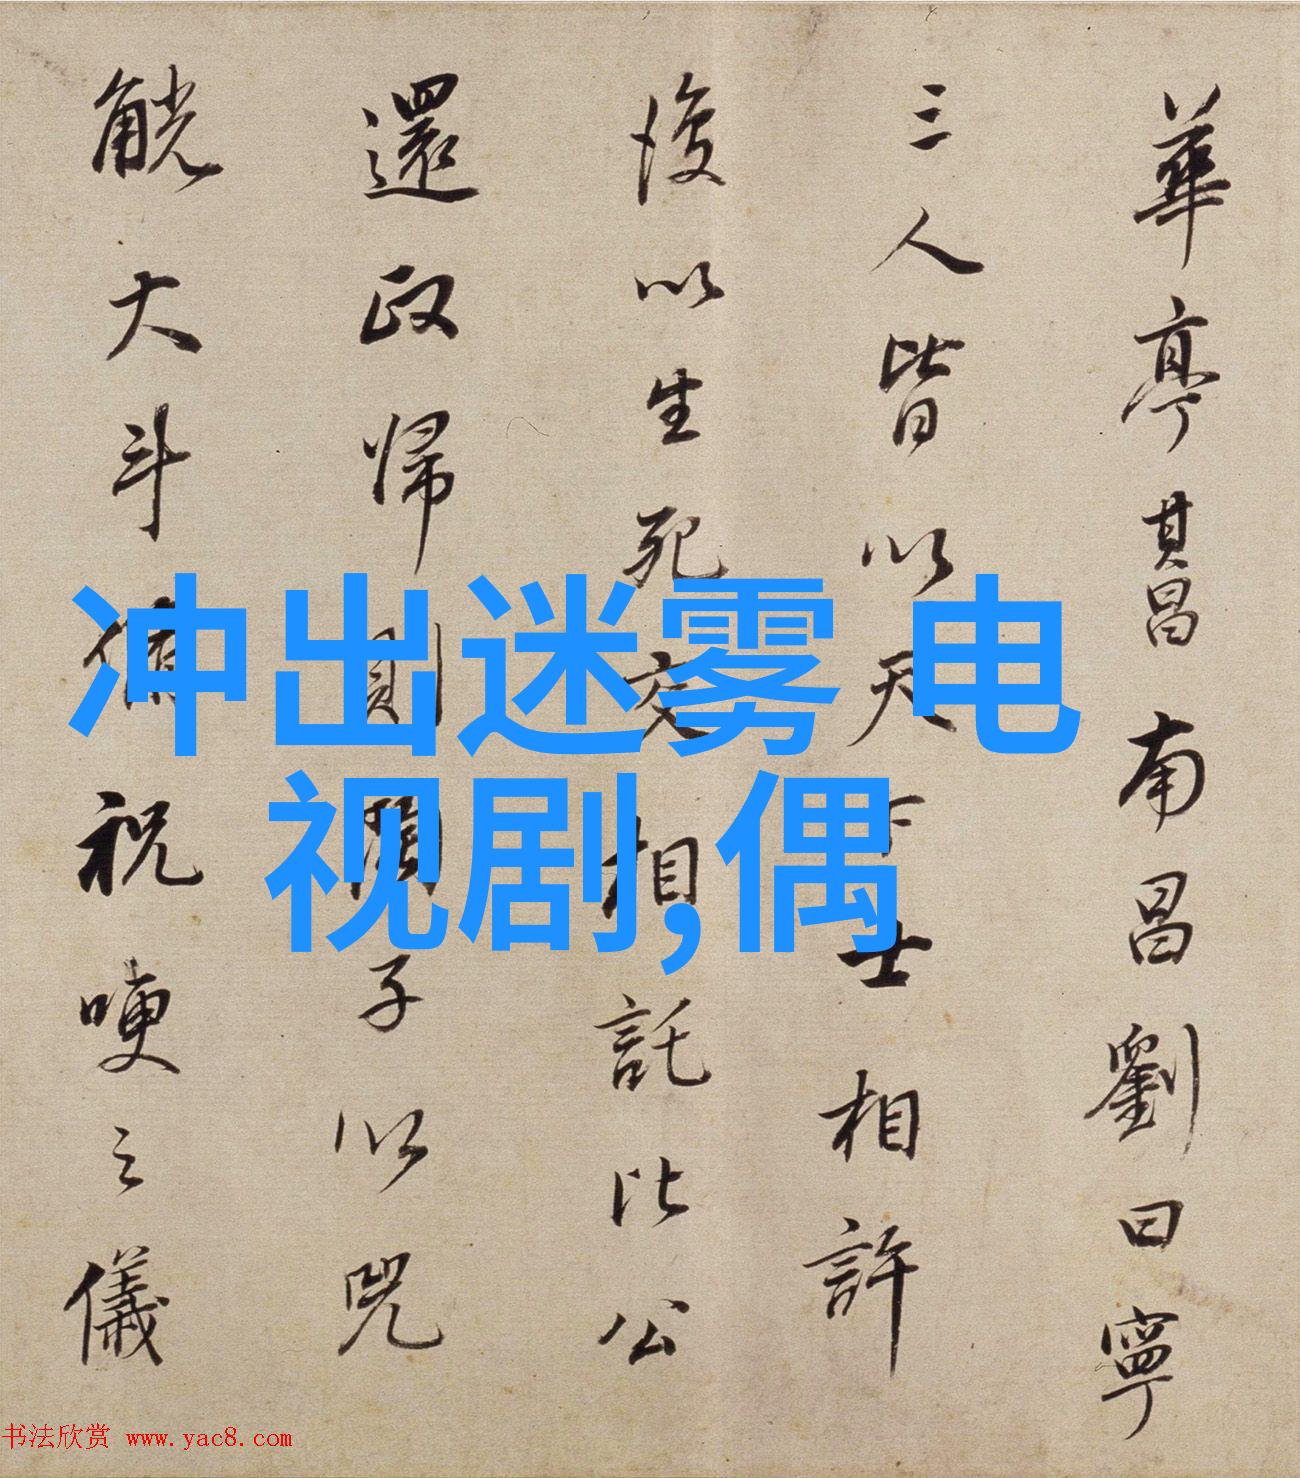 華亭其昌南昌劉曰寧
三人皆以天下士相許
後以生死交相託比公
還政歸則蘭子以兕
觥大斗脩祝哽之儀
冲出迷雾 电
视剧,偶
书法欣赏 www.yac8.com